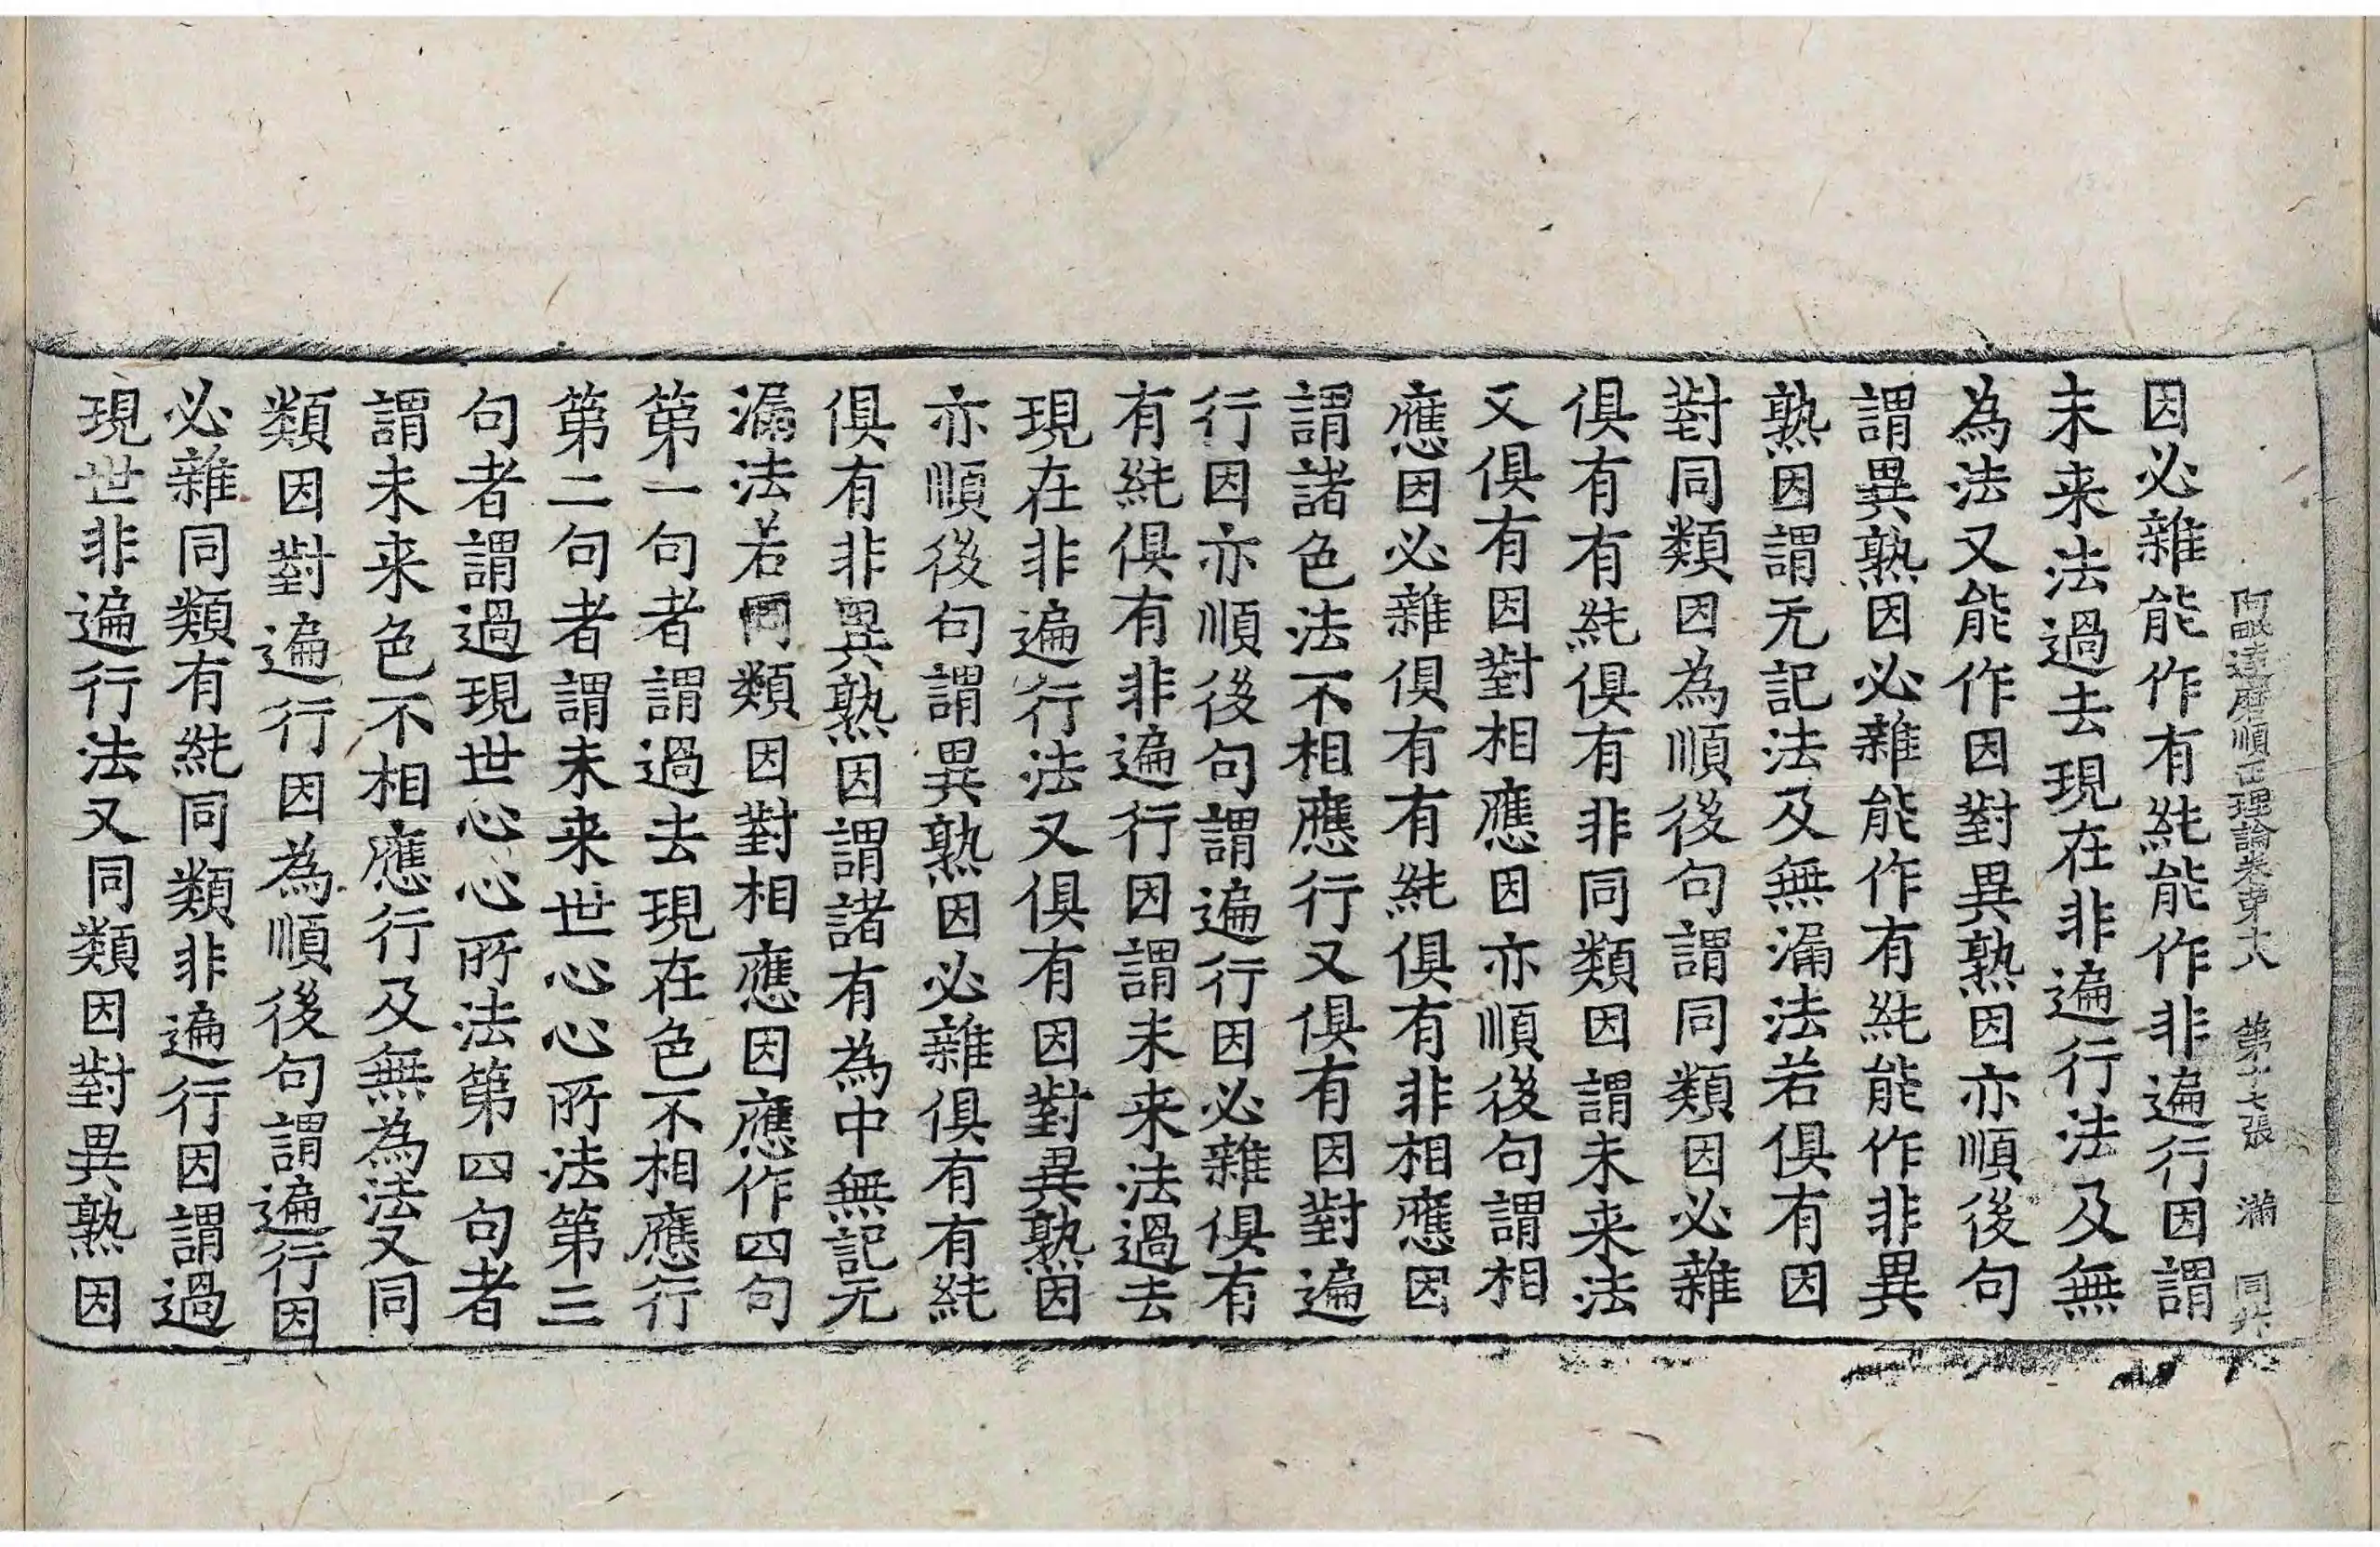 阿毗達磨順正理論卷第十六　第十七張　滿　同共
因必雜能作有純能作非遍行因謂
未来法過去現在非遍行法及無
為法又能作因對異熟因亦順後句
謂異熟因必雜能作有純能作非異
熟因謂无記法及無漏法若俱有因
對同類因為順後句謂同類因必雜
俱有有純俱有非同類因謂未来法
又俱有因對相應因亦順後句謂相
應因必雜俱有有純俱有非相應因
謂諸色法不相應行又俱有因對遍
行因亦順後句謂遍行因必雜俱有
有純俱有非遍行因謂未来法過去
現在非遍行法又俱有因對異熟因
亦順後句謂異熟因必雜俱有有純
俱有非異熟因謂諸有為中無記无
漏法若同類因對相應因應作四句
第一句者謂過去現在色不相應行
第二句者謂未来世心心所法第三
句者謂過現世心心所法第四句者
謂未来色不相應行及無為法又同
類因對遍行因為順後句謂遍行因
必雜同類有純同類非遍行因謂過
現世非遍行法又同類因對異熟因